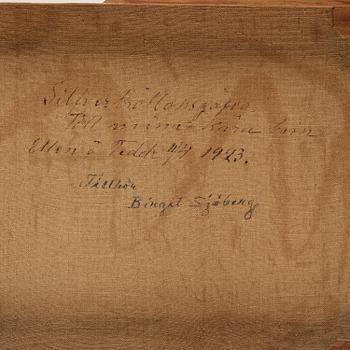 Silfverbröllopsgåfva
Till mina kära barn
Ellen o Tedde 11/7 1923.
Tillhör
Birgit Sjöberg